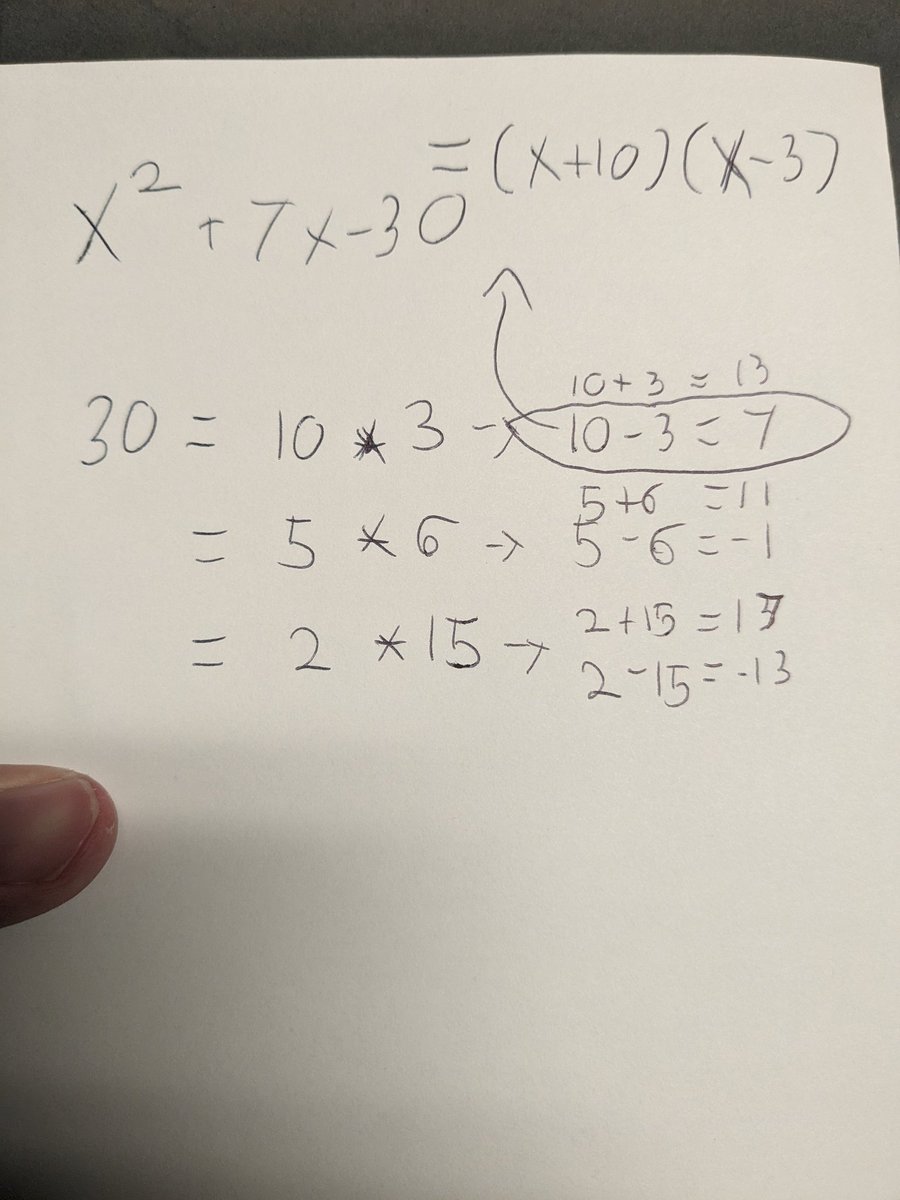 x² + 7x-30 = (x+10)(x-3)
10+3 = 13
30 = 10 * 3 → 10-3 = 7
5+6 = 11
= 5 * 6 → 5-6 = -1
2+15 = 17
= 2 * 15 → 2-15 = -13